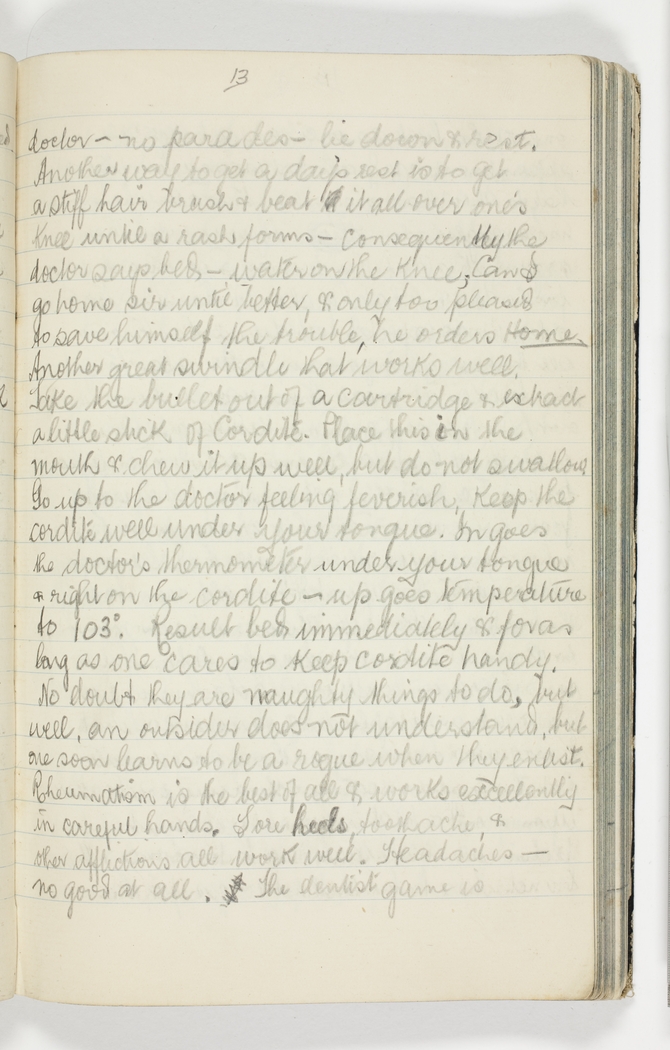 13
doctor – no parades – lie down & rest.
Another way to get a day's rest is to get
a stiff hair brush & beat it all over one's
knee until a rash forms – consequently the
doctor says bed – water on the knee, Can I
go home sir until better, & only too pleased
to save himself the trouble, he orders Home.
Another great swindle that works well.
Take the bullet out of a cartridge & extract
a little stick of Cordite. Place this in the
mouth & chew it up well, but do not swallow
Go up to the doctor feeling feverish, Keep the
cordite well under your tongue. In goes
the doctor's thermometer under your tongue
& right on the cordite – up goes temperature
to 103°. Result bed immediately & for as
long as one cares to keep cordite handy.
No doubt they are naughty things to do, but
well, an outsider does not understand, but
one soon learns to be a rogue when they enlist.
Rheumatism is the best of all & works excellently
in careful hands. Sore heels, toothache, &
other afflictions all work well. Headaches –
no good at all. The dentist game is